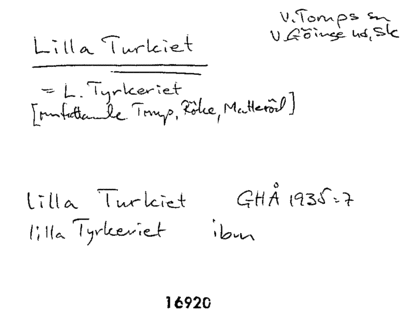 V. Torups sn
V. Göinge hd, Sk
Lilla Turkiet
= L. Tyrkeriet
[omfattande Torup, Röke, Matteröd]
Lilla Turkiet GHÅ 1935:7
lilla Tyrkeriet ibm
16920